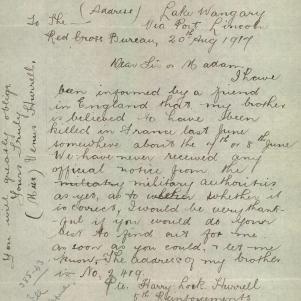 (Address) Lake Wangary
Via Port Lincoln
To the
Red Cross Bureau, 20th Aug 1917
Dear Sir or Madam,
I have
been informed by a friend
in England that my brother
is believed to have been
killed in France last June
somewhere about the 7th or 8th June
We have never received any
official notice from the
military military authorities
as yet, as to whether it
is correct, I would be very thank-
ful if you would do your
best to find out for me
as soon as you could, & let me
know, The address of my brother
is No. 2419.
Pte. Harry Lock Hurrell
5th Reinforcements
You will greatly oblige
Yours Truly
(Miss) Venus Hurrell.